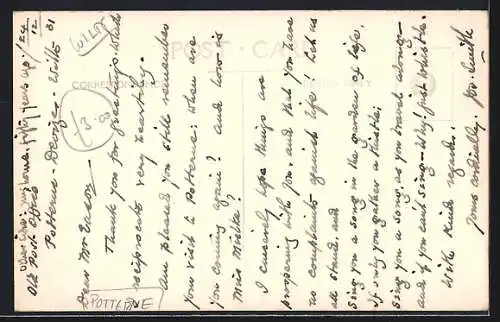 POST CARD
CORRESPONDENCE
WILTS
£3.00
my home fifty years ago!
Old Post Office
Potterne - Devizes - Wilts
24/12/31
Dear Mr Eason
Thank you for greetings which
reciprocate very heartily.
am pleased you still remember
your visit to Potterne. When are
you coming again? and how is
Miss
I sincerely hope things are
prospering with you and that you have
no complaints against life! Let us
all stand and
Sing you a song in the garden of life,
If only you gather a thistle;
Sing you a song, as you travel along -
and if you can't sing - Why! just whistle.
With kind regards.
Yours cordially. Smith
POTTERNE